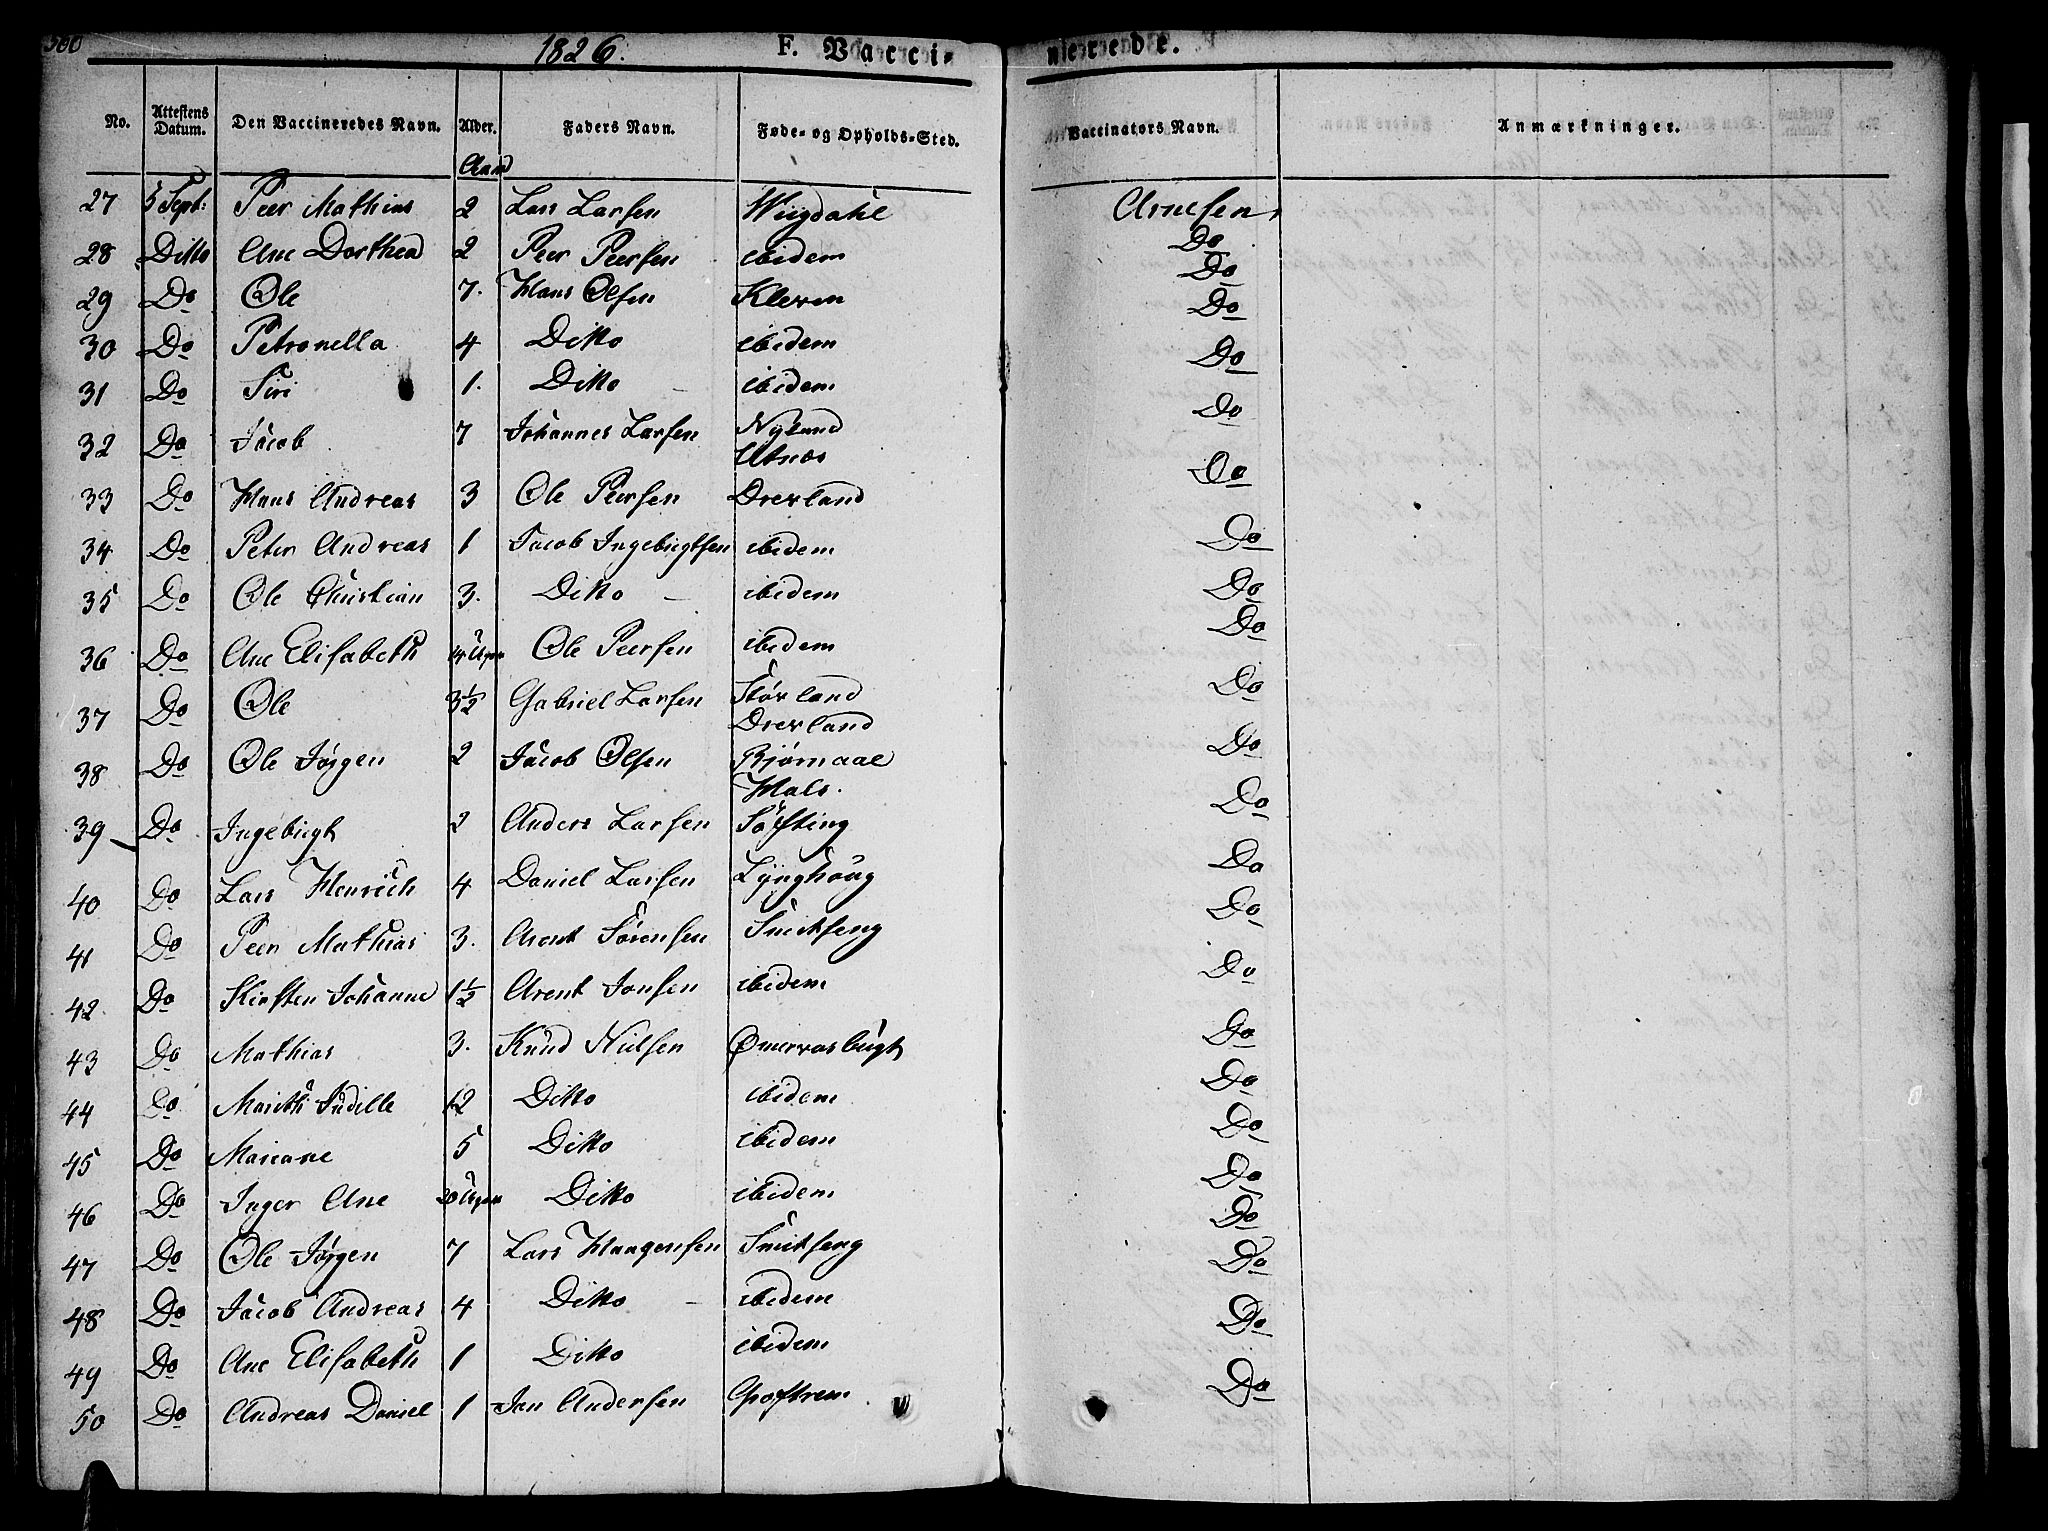 300 1826. F. Vacci- nerede.
No. Attestens Datum. Den Vaccineredes Navn. Alder. Faders Navn. Føde- og Opholds-Sted. Vaccinators Navn. Anmærkninger.
Aar
27 5 Sept: Peer Mathias 2 Lars Larsen Wiigdahl Arnesen
28 Ditto Ane Dorthea 2 Peer Peersen ibidem Do
29 Do Ole 7. Hans Olsen Kleven Do
30 Do Petronella 4 Ditto ibidem Do
31 Do Siri 1. Ditto ibidem Do
32 Do Jacob 7 Johannes Larsen Nyland Utnæs Do
33 Do Hans Andreas 3 Ole Peersen Drevland Do
34 Do Peter Andreas 1 Jacob Ingebrigtsen ibidem Do
35 Do Ole Christian 3. Ditto ibidem Do
36 Do Ane Elisabeth 14 Uger Ole Peersen ibidem Do
37 Do Ole 3½ Gabriel Larsen Størland Drevland Do
38 Do Ole Jørgen 2 Jacob Olsen Bjørnaae Hals. Do
39 Do Ingebrigt 2 Anders Larsen Søfting Do
40 Do Lars Henrich 4 Daniel Larsen Lynghoug Do
41 Do Peer Mathias 3. Arent Sørensen Smitseng Do
42 Do Kirsten Johanne 1½ Arent Jonsen ibidem Do
43 Do Mathias 3. Knud Nielsen Ømervasbugt Do
44 Do Marith Judille 12 Ditto ibidem Do
45 Do Mariane 5 Ditto ibidem Do
46 Do Inger Ane 20 Uger Ditto ibidem Do
47 Do Ole Jørgen 7 Lars Haagensen Smitseng Do
48 Do Jacob Andreas 4 Ditto ibidem Do
49 Do Ane Elisabeth 1 Ditto ibidem Do
50 Do Andreas Daniel 1 Jon Andersen Do